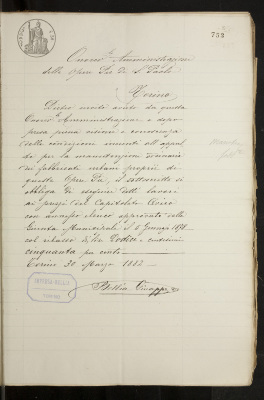 733
Onor.le Amministrazione
delle Opere Pie di S. Paolo
Torino
Dietro invito avuto da questa
Onor.le Amministrazione e dopo
presa piena visione e conoscenza
delle condizioni inerenti all'appalto
per la manutenzione
ai fabbricati urbani proprii di
questa Opera Pia, il sottoscritto si
obbliga di eseguire detti lavori
ai prezzi del Capitolato Civico
con annesso elenco approvato dalla
Giunta Municipale il 6 Gennaio
col ribasso di Lire Dodici, centesimi
cinquanta per cento
Torino 30 Marzo 1883
Bellia Giuseppe
IMPRESA BELLIA
TORINO